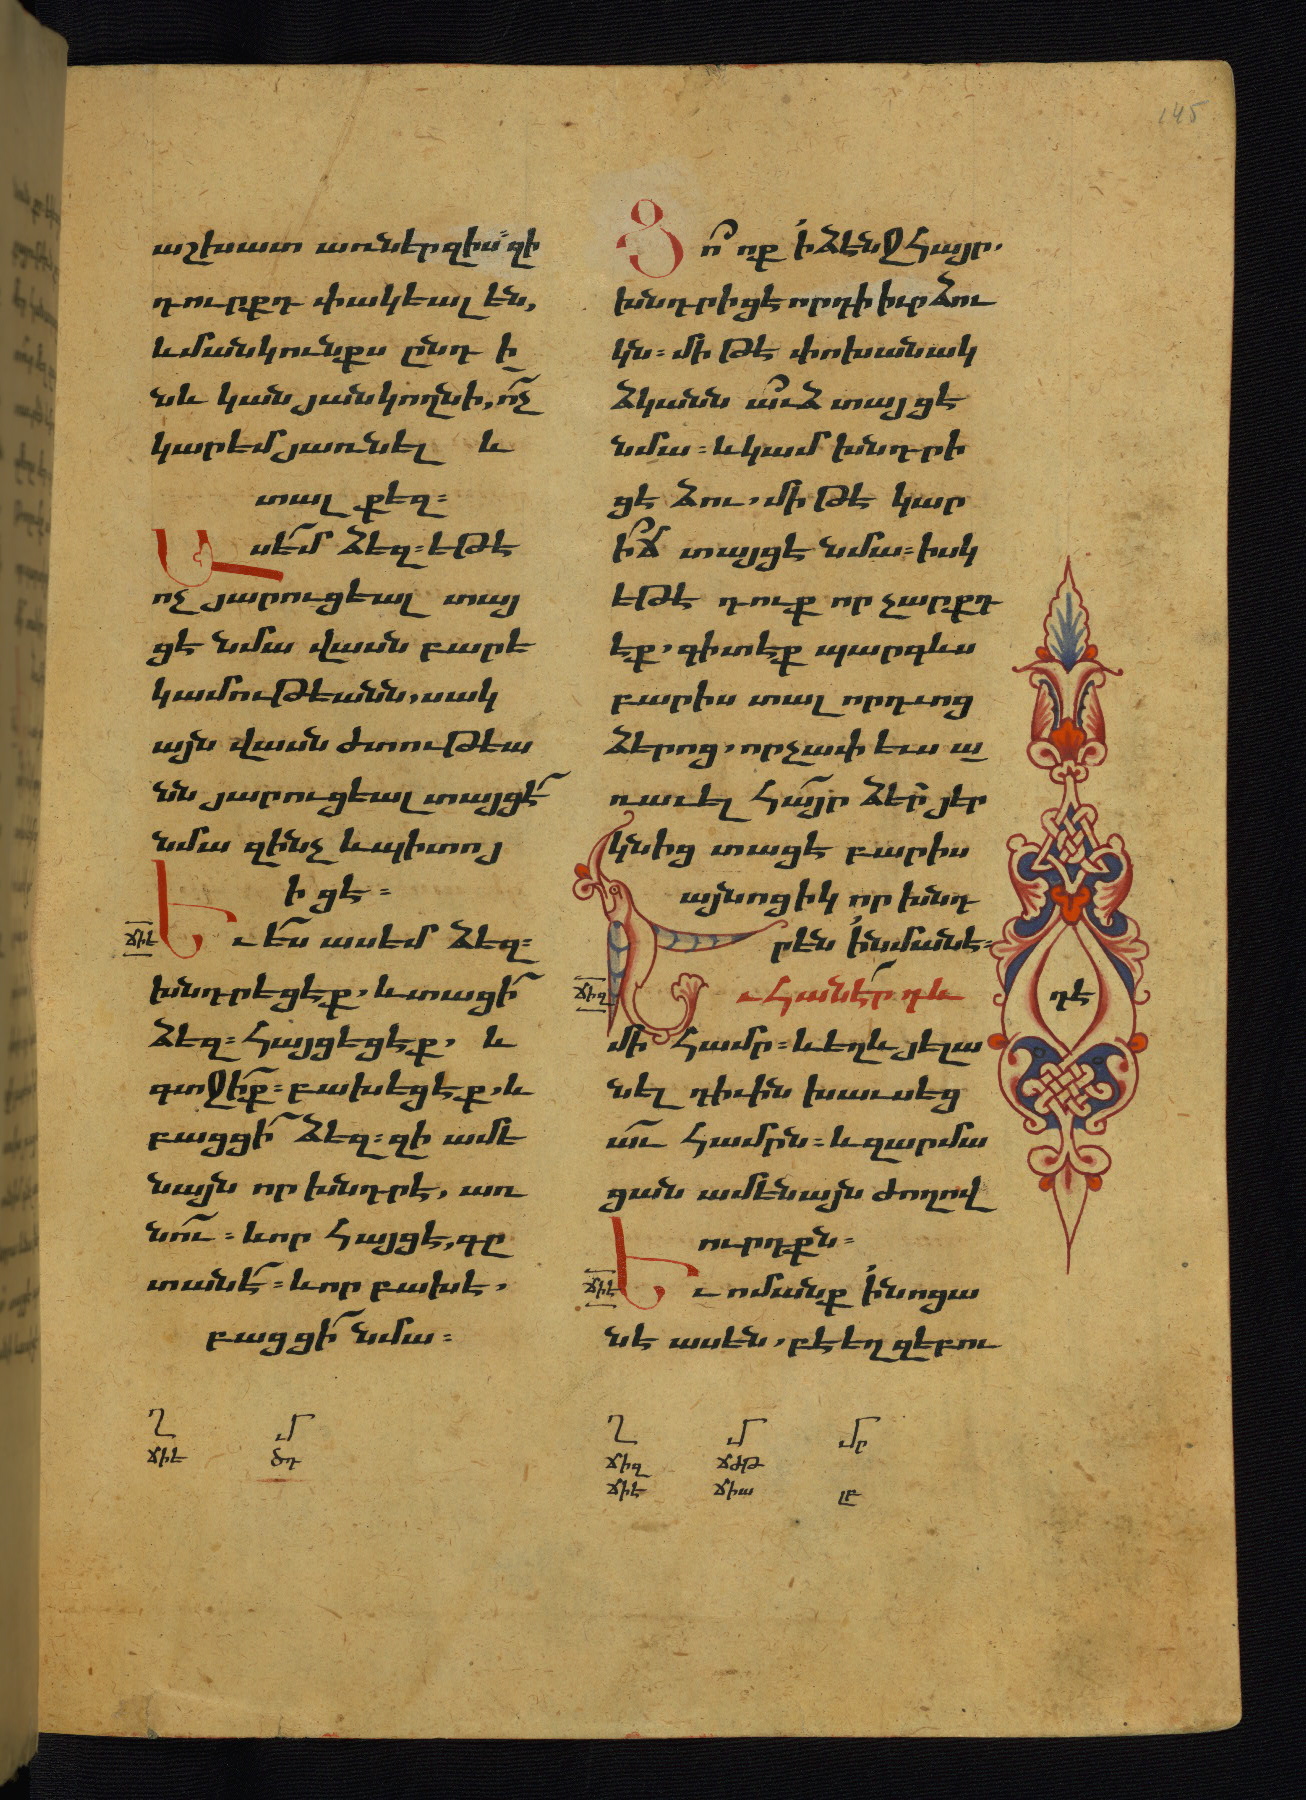 145
աշխատ առներ զիս՝ զի
դուրքդ փակեալ են,
և մանկունքս ընդ ի
նև կան յանկողնի, ոչ
կարեմ յառնել և
տալ քեզ։
Ասեմ ձեզ։ եթէ
ոչ յարուցեալ տայ
ցէ նմա վասն բարե
կամութեանն, սակ
այն վասն ժտութեա
նն յարուցեալ տայցէ
նմա զինչ և պիտոյ
իցէ։
ճիե
Եւ ես ասեմ ձեզ։
խնդրեցէք, և տացի
ձեզ։ հայցեցէք, և
գտջիք։ բախեցէք, և
բացցի ձեզ։ զի ամե
նայն որ խնդրէ, առ
նու։ և որ հայցէ, գը
տանէ։ և որ բախէ,
բացցի նմա։
Զ
ո՞ ոք ի ձէնջ հայր,
խնդրիցէ որդի իւր ձու
կն։ մի թէ փոխանակ
ձկանն աւձ տայցէ
նմա։ և կամ խնդրի
ցէ ձու, մի թէ կար
իճ տայցէ նմա։ իսկ
եթէ դուք որ չարքդ
էք, գիտէք պարգևս
բարիս տալ որդւոց
ձերոց, որչափ ևս ա
ռաւել հայր ձեր յեր
կնից տացէ բարիս
այնոցիկ որ խնդ
րեն ի նմանէ։
ճիզ
Եւ հանէր դև
մի համր։ և եղև յելա
նել դիւին խաւսեց
աւ համրն։ և զարմա
ցան ամենայն ժողով
ուրդքն։
ճիէ
Եւ ոմանք ի նոցա
նէ ասեն, բէեղզեբու
դէ
Ղ Մ
ճիե ծդ
Ղ Մ Մր
ճիզ ճժթ
ճիէ ճիա լբ